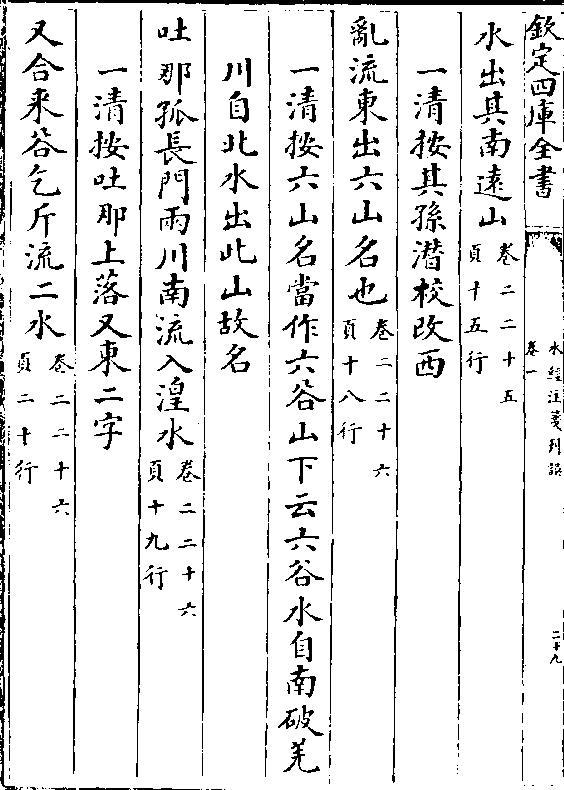 欽定四庫全書
水經注箋刋誤
卷一
二十九
水出其南遠山卷二二十五
頁十五行
一清按其孫潛校改西
亂流東出六山名也卷二二十六
頁十八行
一清按六山名當作六谷山下云六谷水自南破羌
川自北水出此山故名
吐那孤長門兩川南流入湟水卷二二十六
頁十九行
一清按吐那上落又東二字
又合来谷乞斤流二水卷二二十六
頁二十行